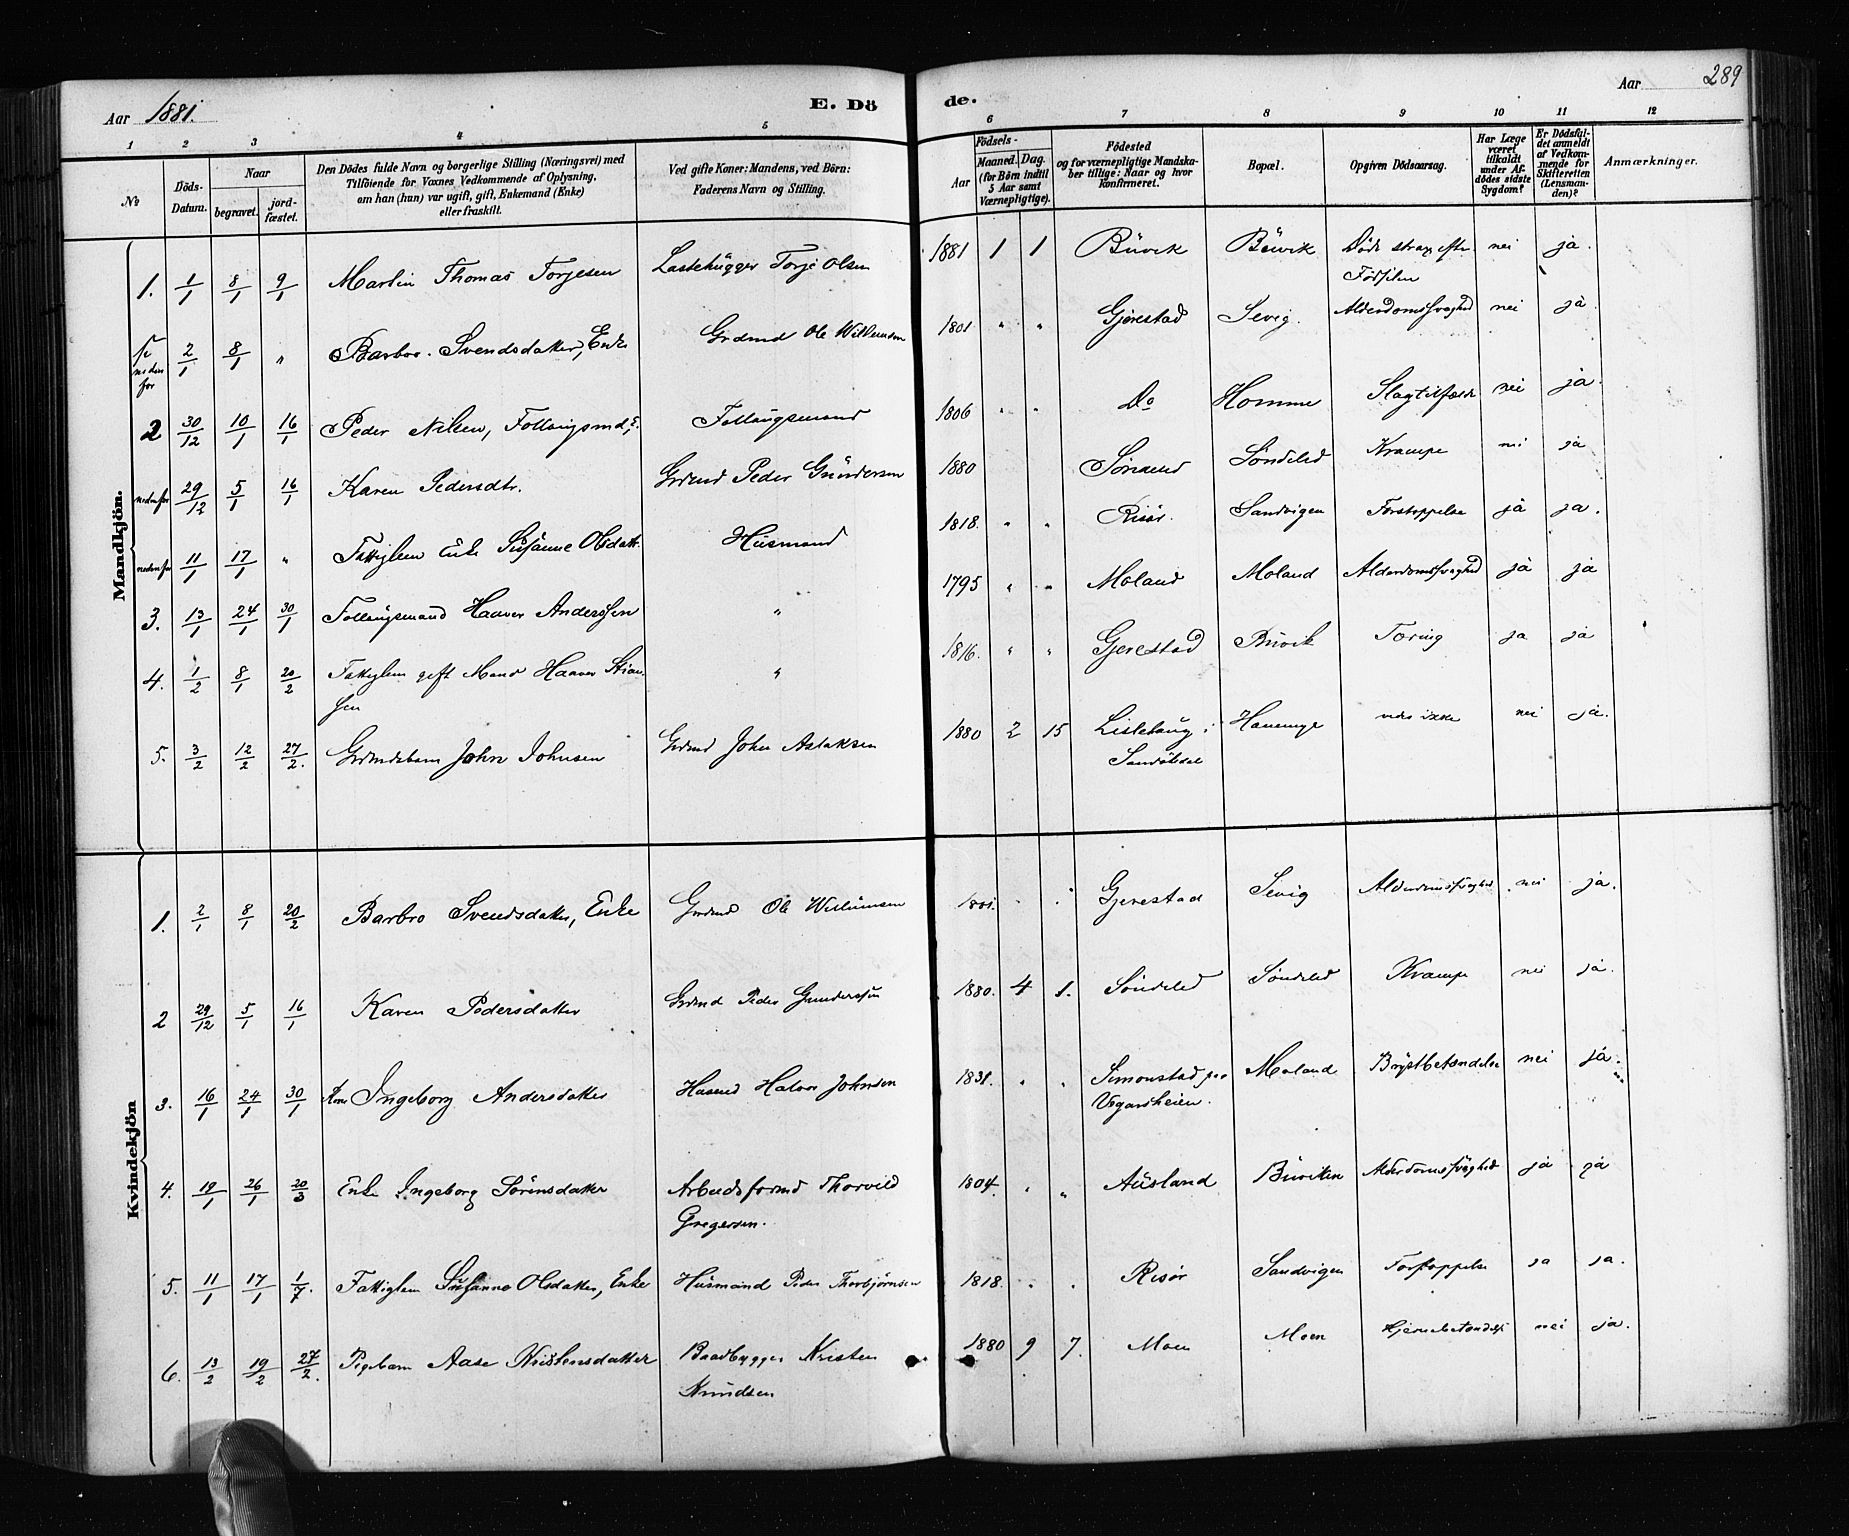 Aar 1881.
E. Döde.
Aar 289
1 2 3 4 5 6 7 8 9 10 11 12
№
Döds-Datum.
Naar
begravet.
jordfæstet.
Den Dödes fulde Navn og borgerlige Stilling (Næringsvei) med
Tilföiende for Voxnes Vedkommende af Oplysning,
om han (hun) var ugift, gift, Enkemand (Enke)
eller fraskilt.
Ved gifte Koner: Mandens, ved Börn:
Faderens Navn og Stilling.
Födsels-
Aar
Maaned. Dag.
(for Börn indtil
5 Aar samt
Værnepligtige).
Födested
og for værnepligtige Mandskaber
tillige: Naar og hvor
konfirmeret.
Bopæl.
Opgiven Dödsaarsag.
Har Læge
været
tilkaldt
under Afdödes
sidste
Sygdom?
Er Dödsfaldet
anmeldt
af Vedkommende
for
Skifteretten
(Lensmanden)?
Anmærkninger.
Mandkjön.
1. 1/1 8/1 9/1 Martin Thomas Torjesen Lastehugger Torje Olsen 1881 1 1 Buvik Buvik Död strax efter nei ja.
Födselen
Se nedenfor 2/1 8/1 " Barbro Svendsdatter, Enke Grdmd Ole Willumsen 1801 " " Gjerestad Sevig. Alderdomssvaghed nei ja.
2 30/12 10/1 16/1 Peder Nilsen, Follaugsmd Follaugsmand 1806 " " Do Homme Slagtilfælde nei ja.
nedenfor 29/12 5/1 16/1 Karen Pedersdtr. Grdmd Peder Gundersen 1880 Söndeled Krampe nei ja
nedenfor 11/1 17/1 " Fattiglem Enke Susanne Olsdatt. Husmand 1818. " " Risör. Sandvigen Forstoppelse ja ja.
3. 13/1 24/1 30/1 Follaugsmand Haaver Anderssen " 1795 " " Moland Moland Alderdomssvaghed ja ja
4. 1/2 8/1 20/2 Fattiglem gift Mand Haaver Stian- " 1816. " " Gjerestad Buvik Tæring ja ja
sen
5. 3/2 12/2 27/2. Grdmdsbarn John Johnsen Grdmd John Aslaksen 1880 2 15 Lislehaug i vides ikke nei ja.
Sandökedal
Kvindekjön
1. 2/1 8/1 20/2 Barbro Svendsdatter, Enke Grdmd Ole Willumsen 1801. " " Gjerestad Sevig Alderdomssvaghed nei ja.
2 29/12 5/1 16/1 Karen Pedersdatter Grdmd Peder Gunderssen 1880. 4 1. Söndeled Söndeled Krampe nei ja.
3. 16/1 24/1 30/1 Kone Ingeborg Andersdatter Husmd Halvor Johnsen 1831. " " Simonstad paa Moland Brystbetændelse nei ja.
Vegarsheien.
4. 19/1 26/1 20/3 Enke Ingeborg Sörensdatter Arbeidsformd Thorvild 1804. " " Ausland Buviken Alderdomssvaghed ja ja
Gregersen.
5. 11/1 17/1 1/7. Fattiglem Susanne Olsdatter, Enke Husmand Peder Thorbjörnsen 1818. " " Risör Sandvigen Forstoppelse ja ja.
6. 13/2 19/2 27/2. Pigebarn Aase Kristensdatter Baadbygger Kristen 1880 9 7. Moen Moen Hjernebetændelse nei ja.
Knudsen